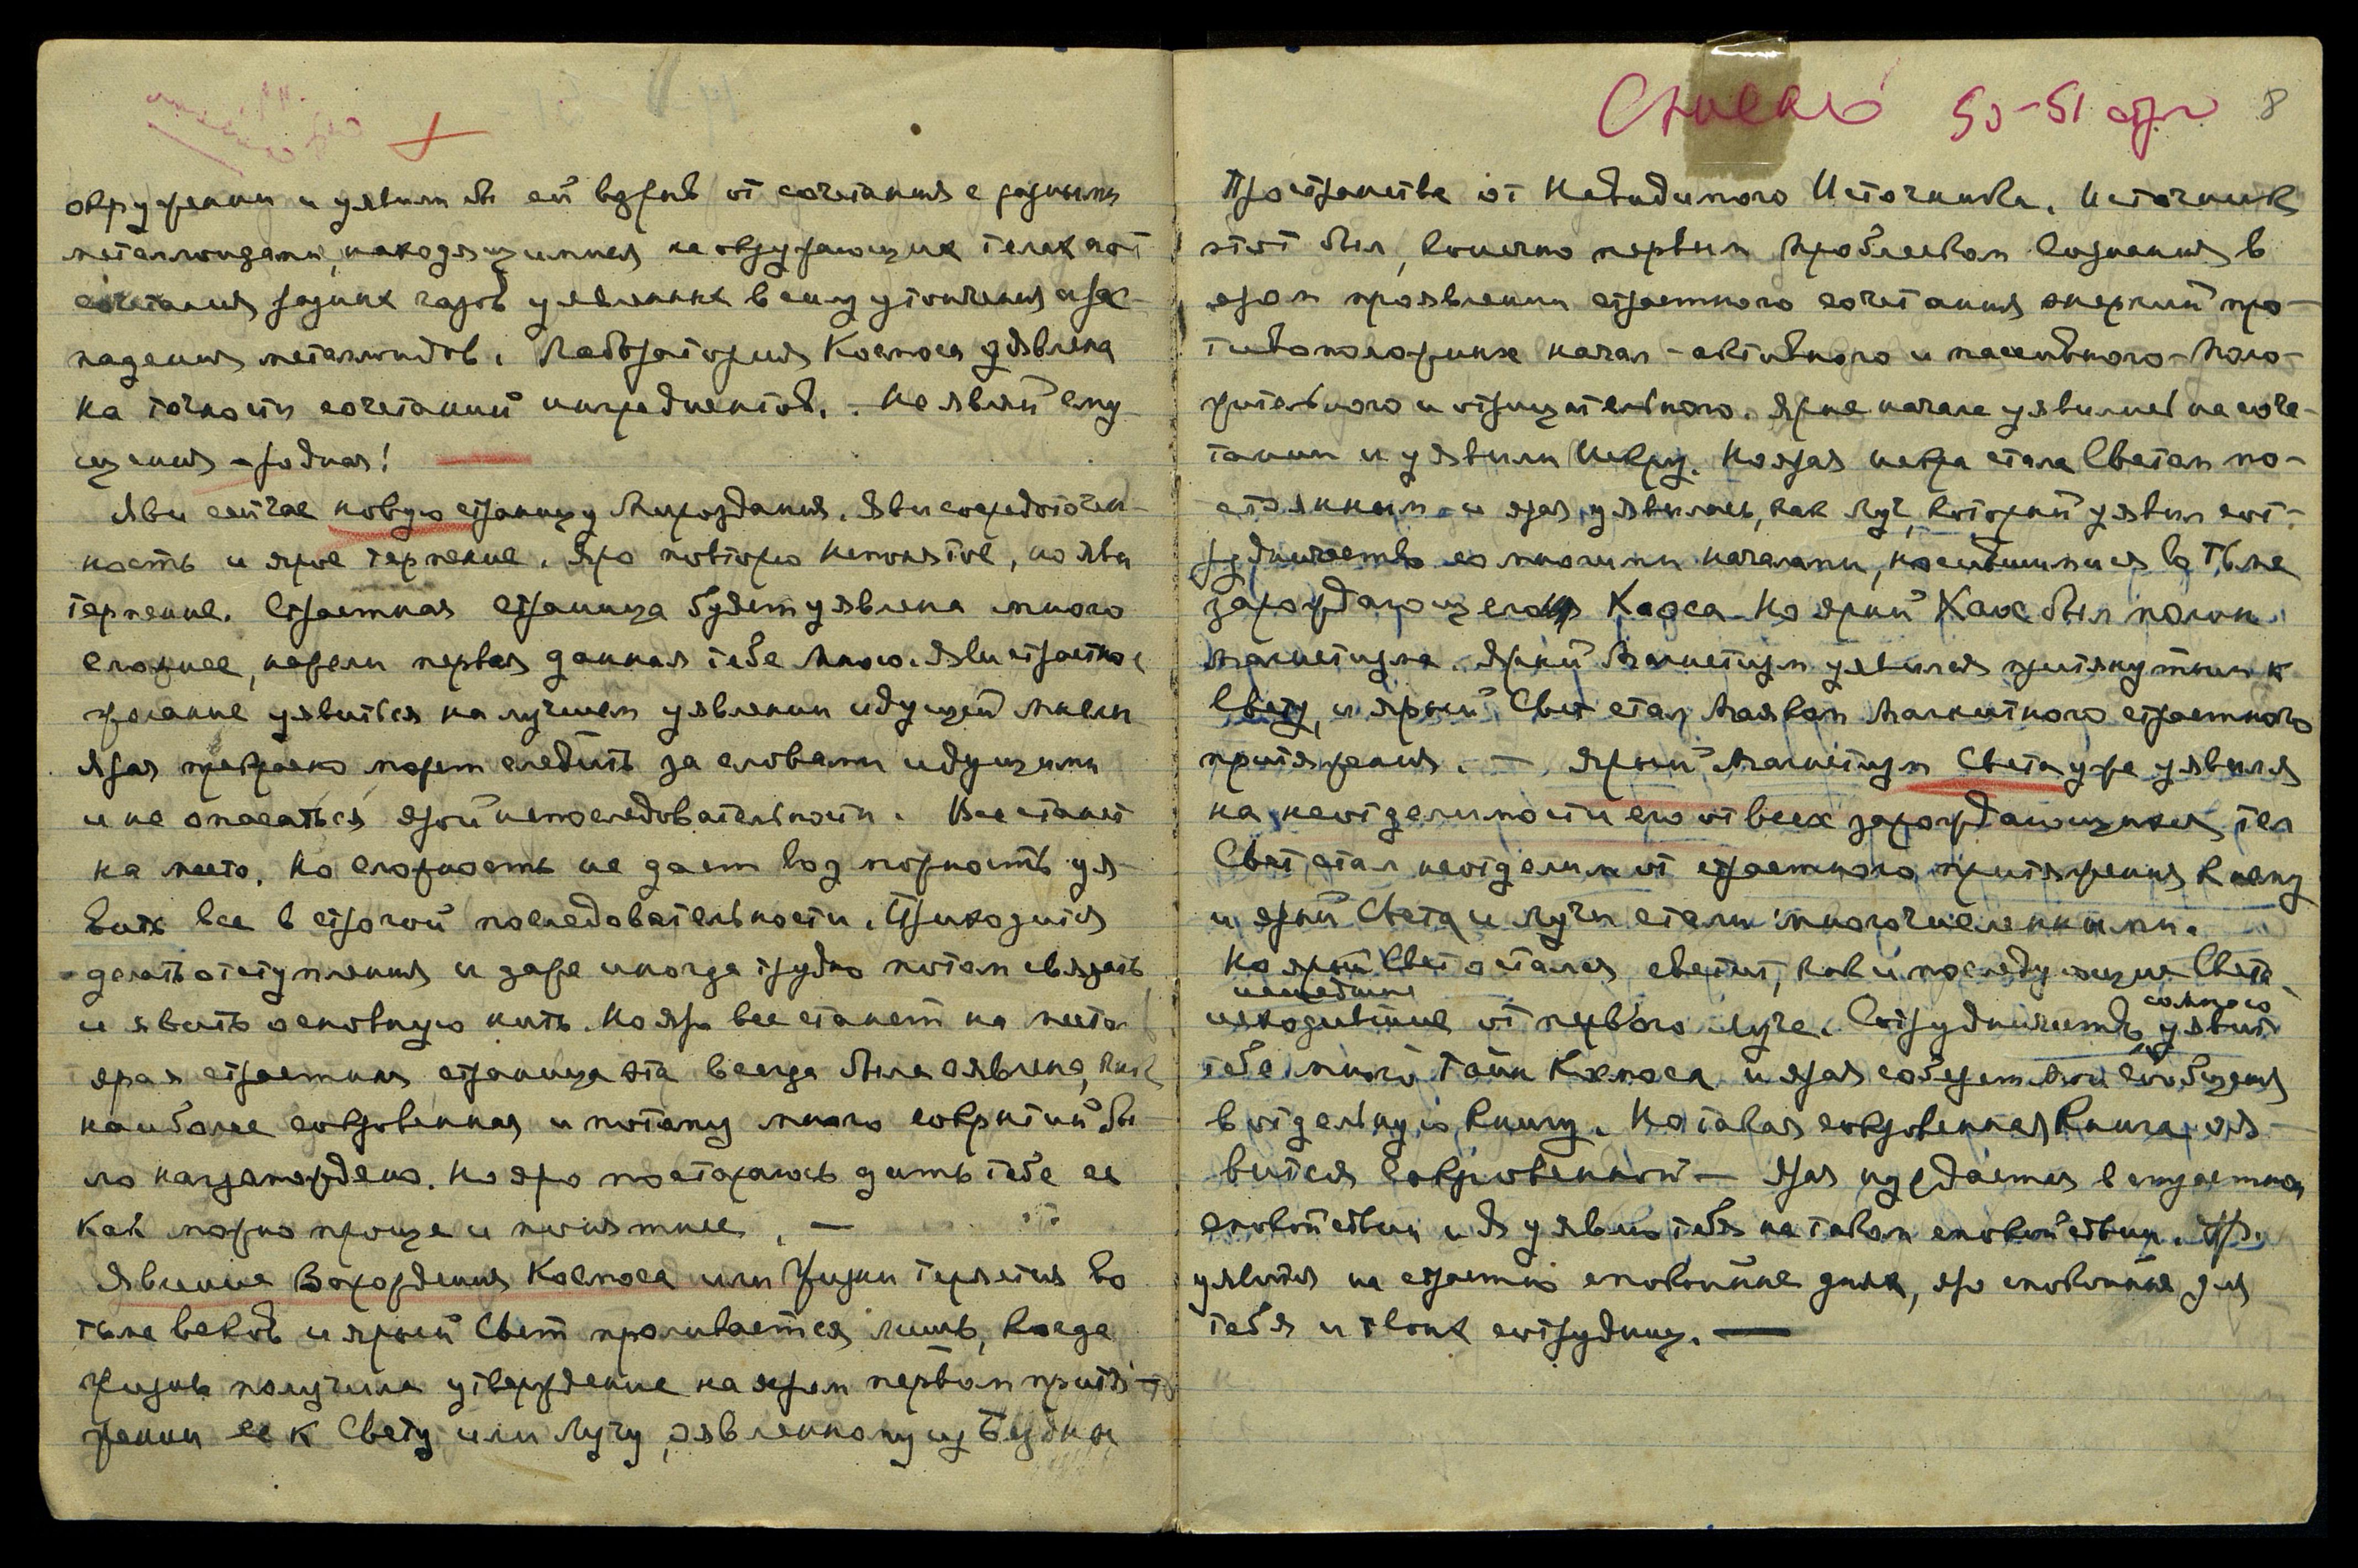 окружении и уявили бы ей взрыв от сочетания с разными
металлоидами, находящимися на окружающих телах и от
сочетания разных газов уявленных в силу утончения и рас-
падения металлоидов. Лаборатория Космоса уявлена
на точности сочетаний ингредиентов. Не являй ему
щения – родная!
Яви сейчас новую страницу Мироздания. Яви сосредоточен-
ность и ярое терпение. Яро повторю непонятое, но яви
терпение. Страстная страница будет уявлена много
сложнее, нежели первая данная тебе Мною. Яви страстное
желание уявиться на лучшем уявлении идущей мысли
Ярая прекрасно может следить за словами идущими
и не опасаться ярой непоследовательности. Все станет
на место. Но сложность не дает возможность уя-
вить все в строгой последовательности. Приходится
делать отступления и даже иногда трудно потом связать
и явить основную нить. Но яро все станет на место
ярая страстная страница эта всегда была оявлена, как
наиболее сокровенная и потому много сокрытий бы-
ло нагромождено. Но яро постараюсь дать тебе ее
как можно проще и понятнее. —
Явление Зарождения Космоса или Жизни теряется во
тьме веков и ярый Свет проливается лишь, когда
Жизнь получила утверждение на яром первом притя-
жении ее к Свету или Лучу, оявленному из Бездны
Стелло 50-51 стр 8
Пространства от Невидимого Источника. Источник
этот был, конечно первым проблеском Сознания в
яром проявлении страстного сочетания энергий про-
тивоположных начал – активного и пассивного – поло-
жительного и отрицательного. Ярые начала уявились на соче-
тании и уявили Искру. Но ярая искра стала Светом по-
стоянным и ярая уявилась, как Луч, который уявил сот-
рудничество со многими началами, носившимися во тьме
зарождающегося Хаоса. Но ярый Хаос был полон
Магнетизма. Ярый Магнетизм уявился притянутым к
Свету, и ярый Свет стал Маяком Магнитного страстного
притяжения. — Ярый Магнетизм Света уже уявился
на неотделимости его от всех зарождающихся тел
Свет стал неотделим от страстного притяжения к нему
и ярый Света и Лучи стали многочисленными.
Но ярый Свет остался светить, как и последующие Света
исшедшие
исходившие от первого Луча. Сотрудничество уявит
тебе много Тайн Космоса и ярая соберет Мои сообщения
в отдельную книгу. Но такая сокровенная Книга оя-
вится Сокровенной — Ярая нуждается в страстном
спокойствии и Я уявлю тебя на таком спокойствии.
уявится на страстно спокойные днях, яро спокойных для
тебя и твоих сотрудниц. —